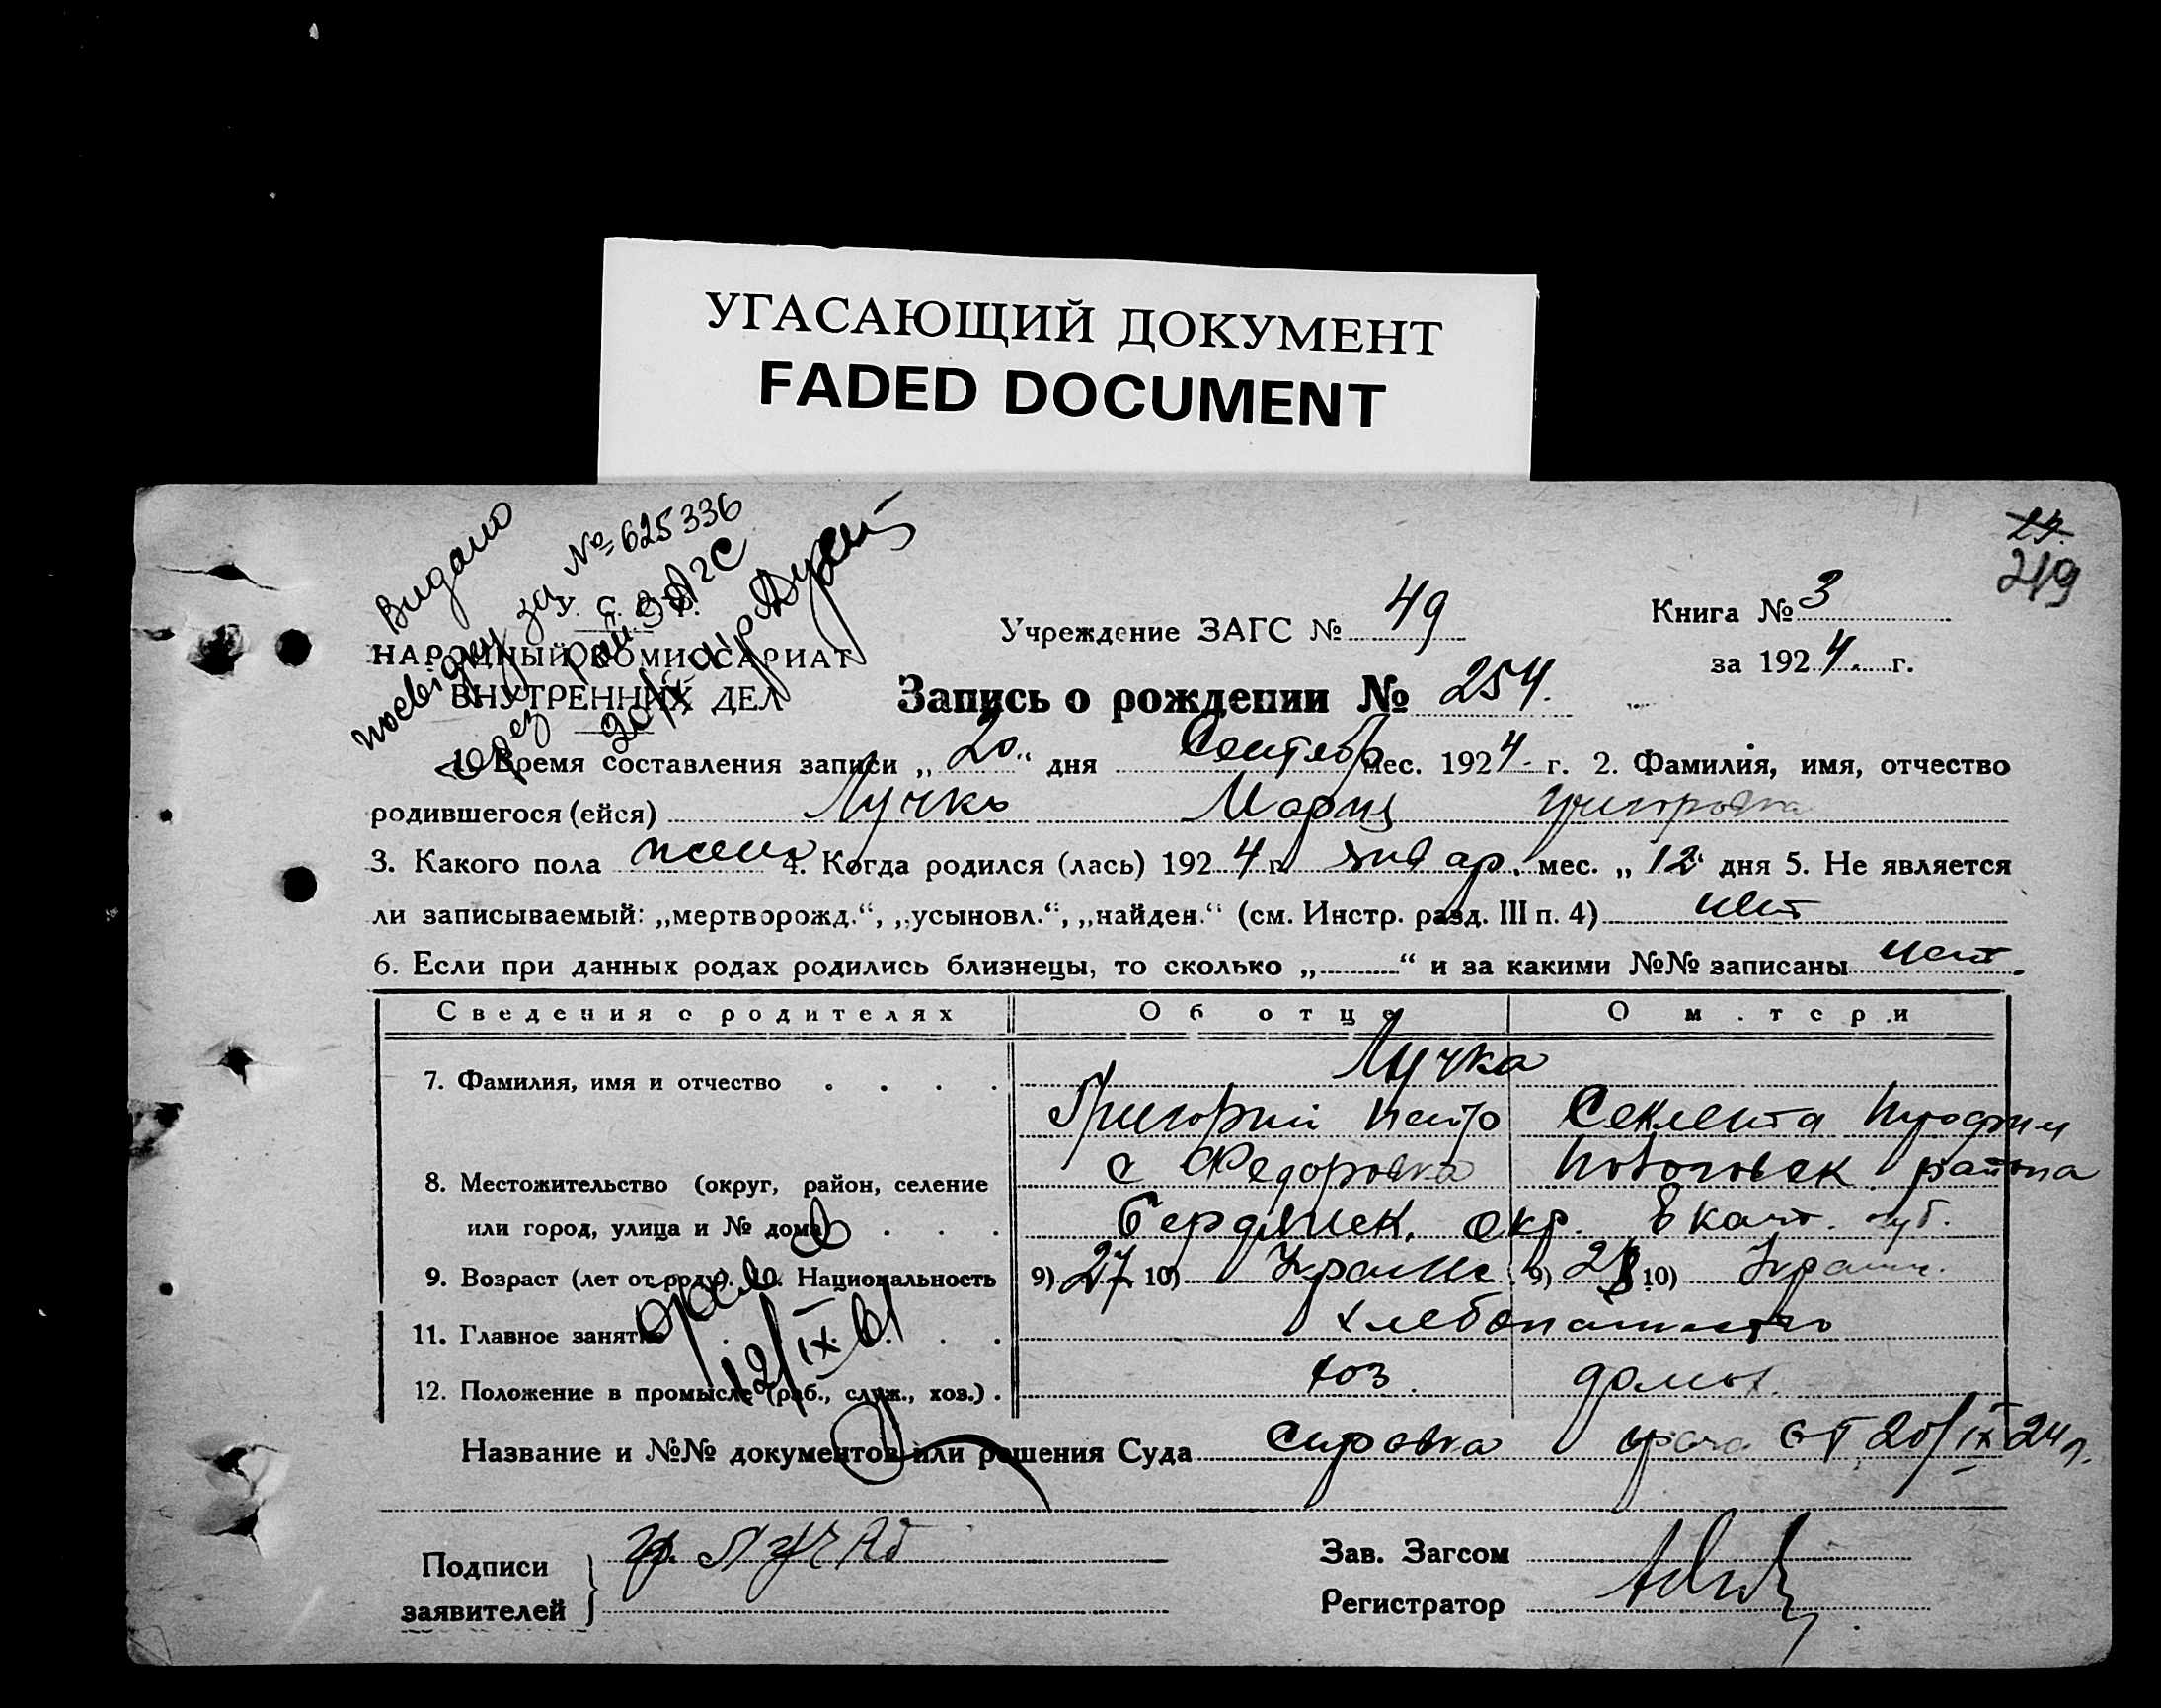 УГАСАЮЩИЙ ДОКУМЕНТ
FADED DOCUMENT
24.
219
Видано
повідку за №625336
через рай ЗАГС
У. С. С. Р.
НАРОДНЫЙ КОМИССАРИАТ
ВНУТРЕННИХ ДЕЛ
Учреждение ЗАГС № 49
Книга № 3
за 1924. г.
Запись о рождении № 254.
1. Время составления записи „20“ дня Сентябр мес. 1924 г. 2. Фамилия, имя, отчество
родившегося (ейся) Лучко Мария Григоровна
3. Какого пола женс 4. Когда родился (лась) 1924 г. январ. мес. „12“ дня 5. Не является
ли записываемый: „мертворожд.“, „усыновл.“, „найден.“ (см. Инстр. разд. III п. 4) нет
6. Если при данных родах родились близнецы, то сколько „ “ и за какими №№ записаны нет.
Сведения о родителях Об отце О м.тери
7. Фамилия, имя и отчество . . . . Лучка
Григорий Петр
8. Местожительство (округ, район, селение с Федоровка района
или город, улица и № дома . . . Бердянск. окр. Екат. губ.
9. Возраст (лет от роду). 10. Национальность 9) 27 10) Украине 9) 28 10) Украин.
11. Главное занятие . . . . Хлебопашество
12. Положение в промысле (раб., служ., хоз.) . хоз. домох.
12/IX 61
Название и №№ документов или решения Суда Справка врача от 20/IX 24 г.
Подписи
заявителей
гр. Лучко
Зав. Загсом
Регистратор